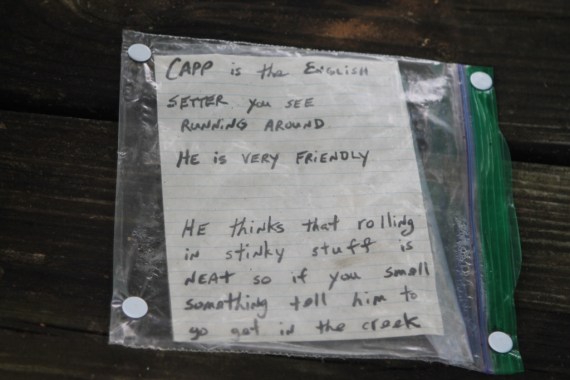 CAPP is the ENGLISH
SETTER you SEE
RUNNING AROUND
HE is VERY FRIENDLY
HE thinks that rolling
in stinky stuff is
NEAT so if you smell
something tell him to
go get in the creek